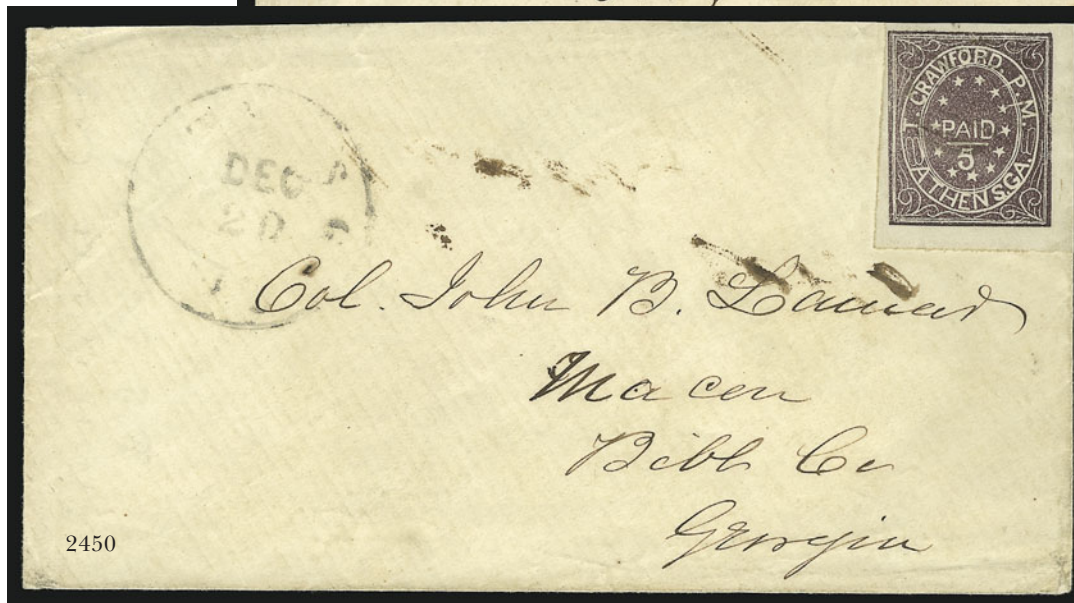 T. CRAWFORD. P.M.
PAID
5
ATHENS, GA.
DEC
20
Col. John B. Lamar
Macon
Bibb Co
Georgia
2450